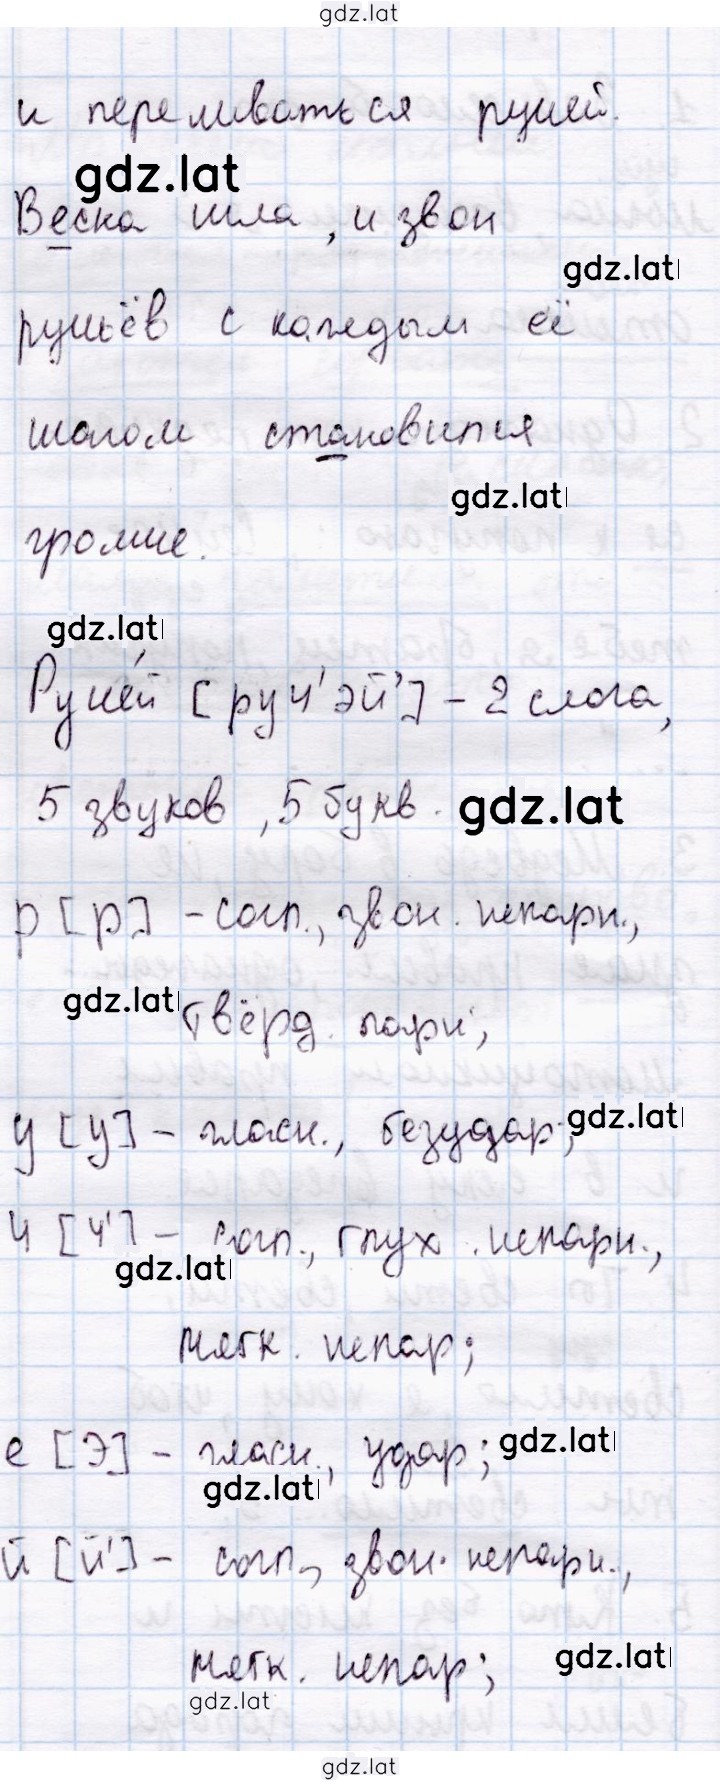 gdz.lat
и переливаться ручей.
gdz.lat
Весна шла, и звон
gdz.lat
ручьёв с каждым её
шагом становился
gdz.lat
громче.
gdz.lat
Ручéй [руч'эй'] - 2 слога,
5 звуков, 5 букв.
gdz.lat
р [р] - согл., звон. непарн.,
gdz.lat
твёрд. парн;
у [у] - гласн., безудар;
gdz.lat
ч [ч'] - согл., глух. непарн.,
gdz.lat
мягк. непар;
е [э] - гласн., удар;
gdz.lat
gdz.lat
й [й'] - согл., звон. непарн.,
мягк. непар;
gdz.lat
gdz.lat
gdz.lat